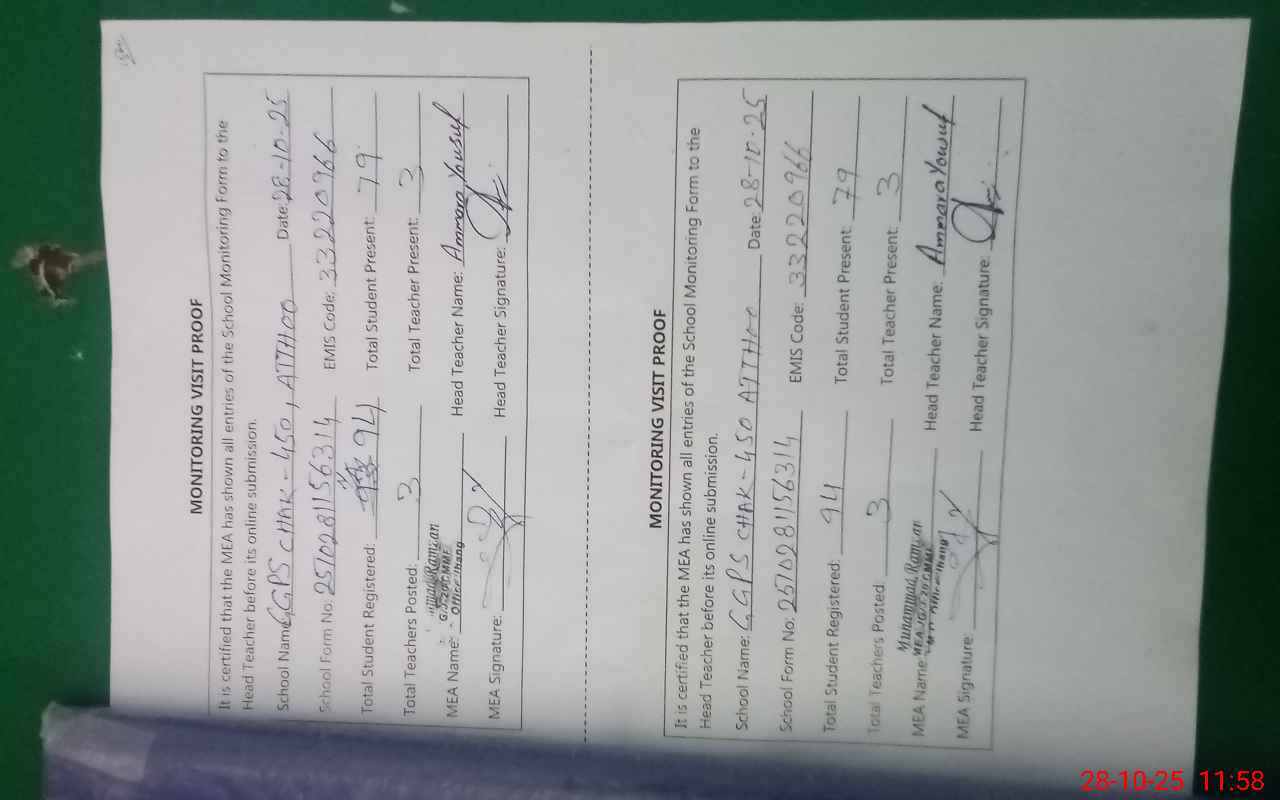 MONITORING VISIT PROOF
It is certified that the MEA has shown all entries of the School Monitoring Form to the
Head Teacher before its online submission.
School Name: GGPS CHAK-450, ATTHOO Date: 28-10-25
School Form No: 2510281156314 EMIS Code: 33220966
Total Student Registered: 94 Total Student Present: 79
Total Teachers Posted: 3 Total Teacher Present: 3
MEA Name: Ramzan Head Teacher Name: Ammara Yousuf
Office Jhang
MEA Signature: Head Teacher Signature:
MONITORING VISIT PROOF
It is certified that the MEA has shown all entries of the School Monitoring Form to the
Head Teacher before its online submission.
School Name: GGPS CHAK-450 ATTHOO Date: 28-10-25
School Form No: 2510281156314 EMIS Code: 33220966
Total Student Registered: 94 Total Student Present: 79
Total Teachers Posted: 3 Total Teacher Present: 3
MEA Name: Muhammad Ramzan Head Teacher Name: Ammara Yousuf
Office Jhang
MEA Signature: Head Teacher Signature:
28-10-25 11:58